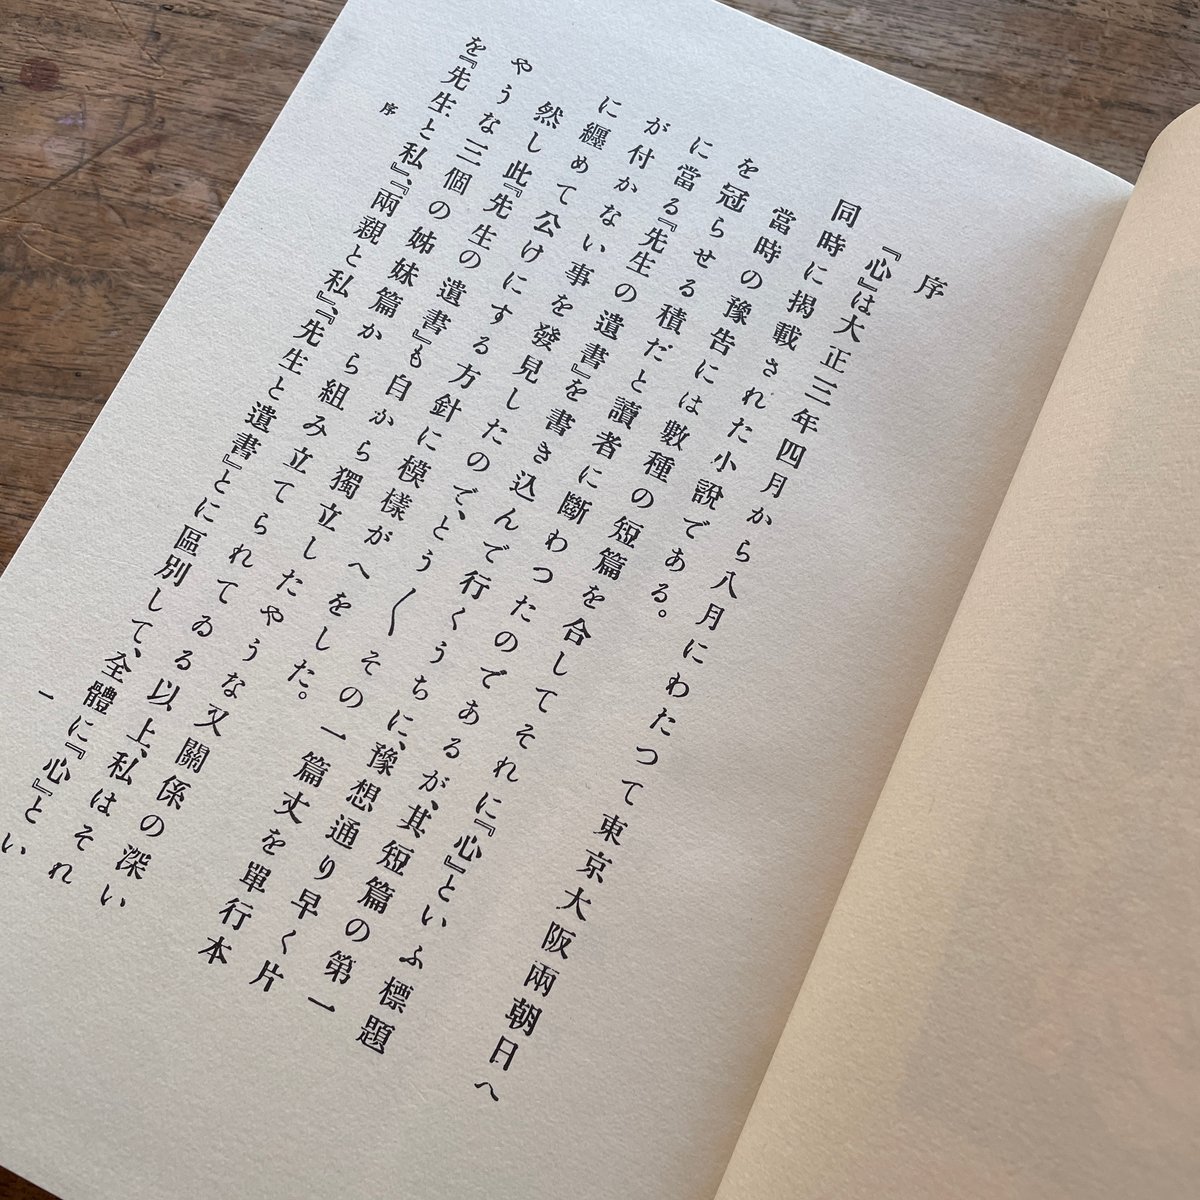 序
『心』は大正三年四月から八月にわたつて東京大阪兩朝日へ
同時に掲載された小説である。
當時の豫告には數種の短篇を合してそれに『心』といふ標題
を冠らせる積だと讀者に斷わつたのであるが、其短篇の第一
に當る『先生の遺書』を書き込んで行くうちに、豫想通り早く片
が付かない事を發見したので、とう〱その一篇丈を單行本
に纒めて公けにする方針に模樣がへをした。
然し此『先生の遺書』も自から獨立したやうな又關係の深い
やうな三個の姊妹篇から組み立てられてゐる以上、私はそれ
を『先生と私』、『兩親と私』、『先生と遺書』とに區別して、全體に『心』とい
序
一